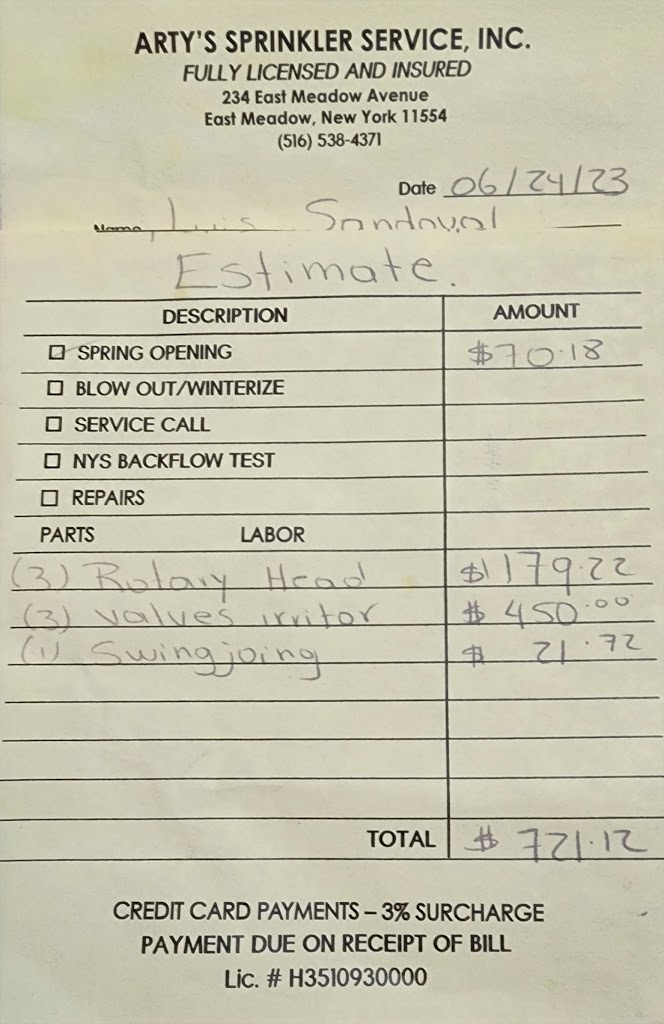 ARTY'S SPRINKLER SERVICE, INC.
FULLY LICENSED AND INSURED
234 East Meadow Avenue
East Meadow, New York 11554
(516) 538-4371
Date 06/24/23
Name Luis Sandoval
Estimate.
DESCRIPTION AMOUNT
SPRING OPENING $70.18
BLOW OUT/WINTERIZE
SERVICE CALL
NYS BACKFLOW TEST
REPAIRS
PARTS LABOR
(3) Rotary Head $179.22
(3) valves irritor $ 450.00
(1) Swingjoing $ 21.72
TOTAL $ 721.12
CREDIT CARD PAYMENTS – 3% SURCHARGE
PAYMENT DUE ON RECEIPT OF BILL
Lic. # H3510930000